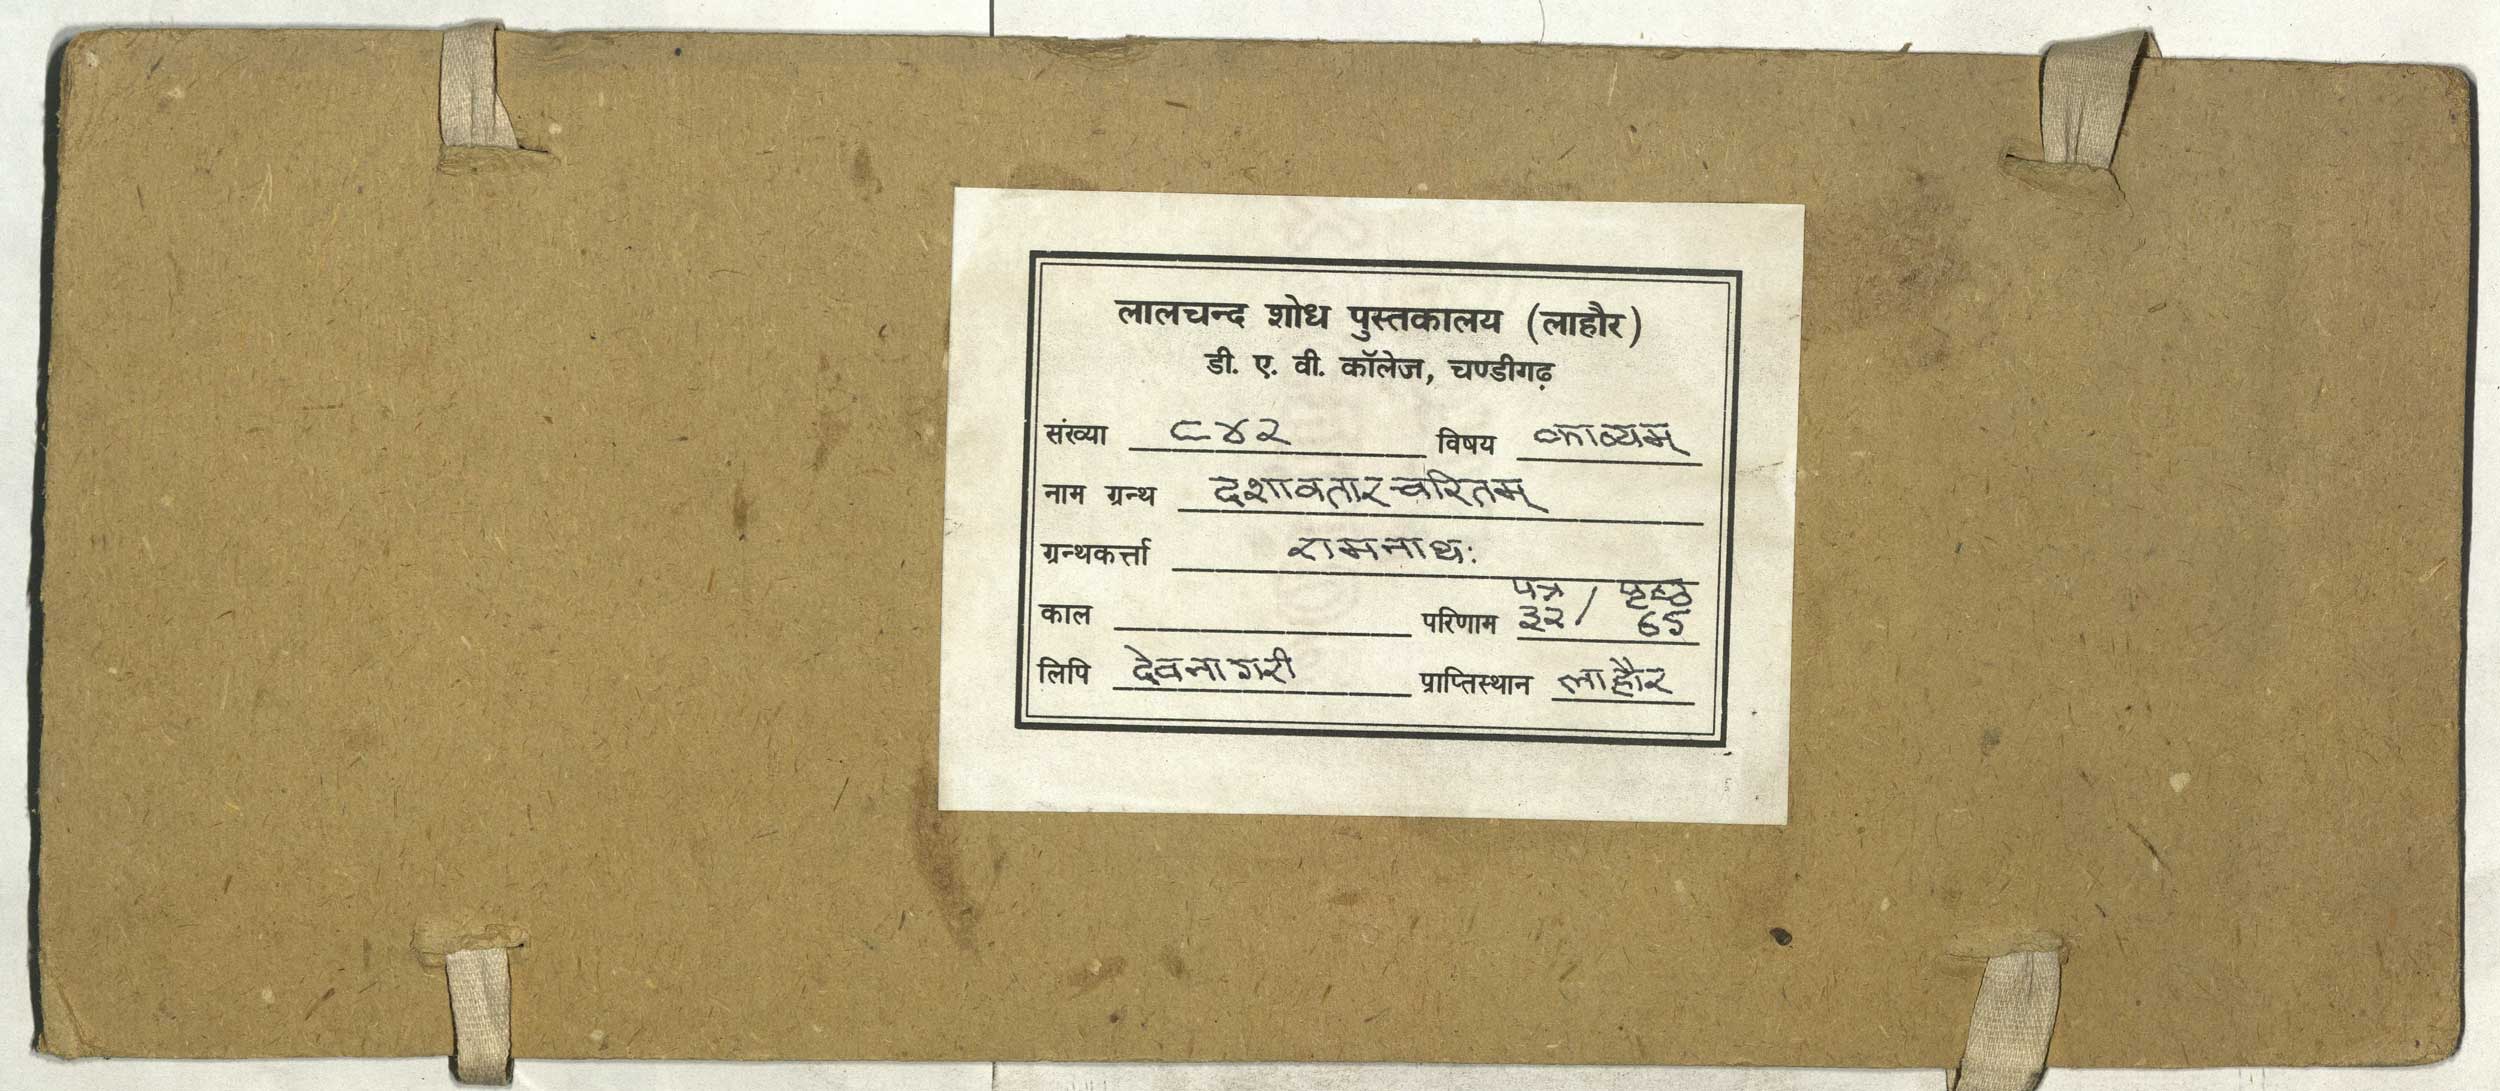 लालचन्द शोध पुस्तकालय (लाहौर)
डी. ए. वी. कॉलेज, चण्डीगढ़
संख्या ८४२ विषय काव्यम्
नाम ग्रन्थ दशावतार चरितम्
ग्रन्थकर्त्ता रामनाथः
पत्र / पृष्ठ
काल परिणाम ३२ / 65
लिपि देवनागरी प्राप्तिस्थान लाहौर